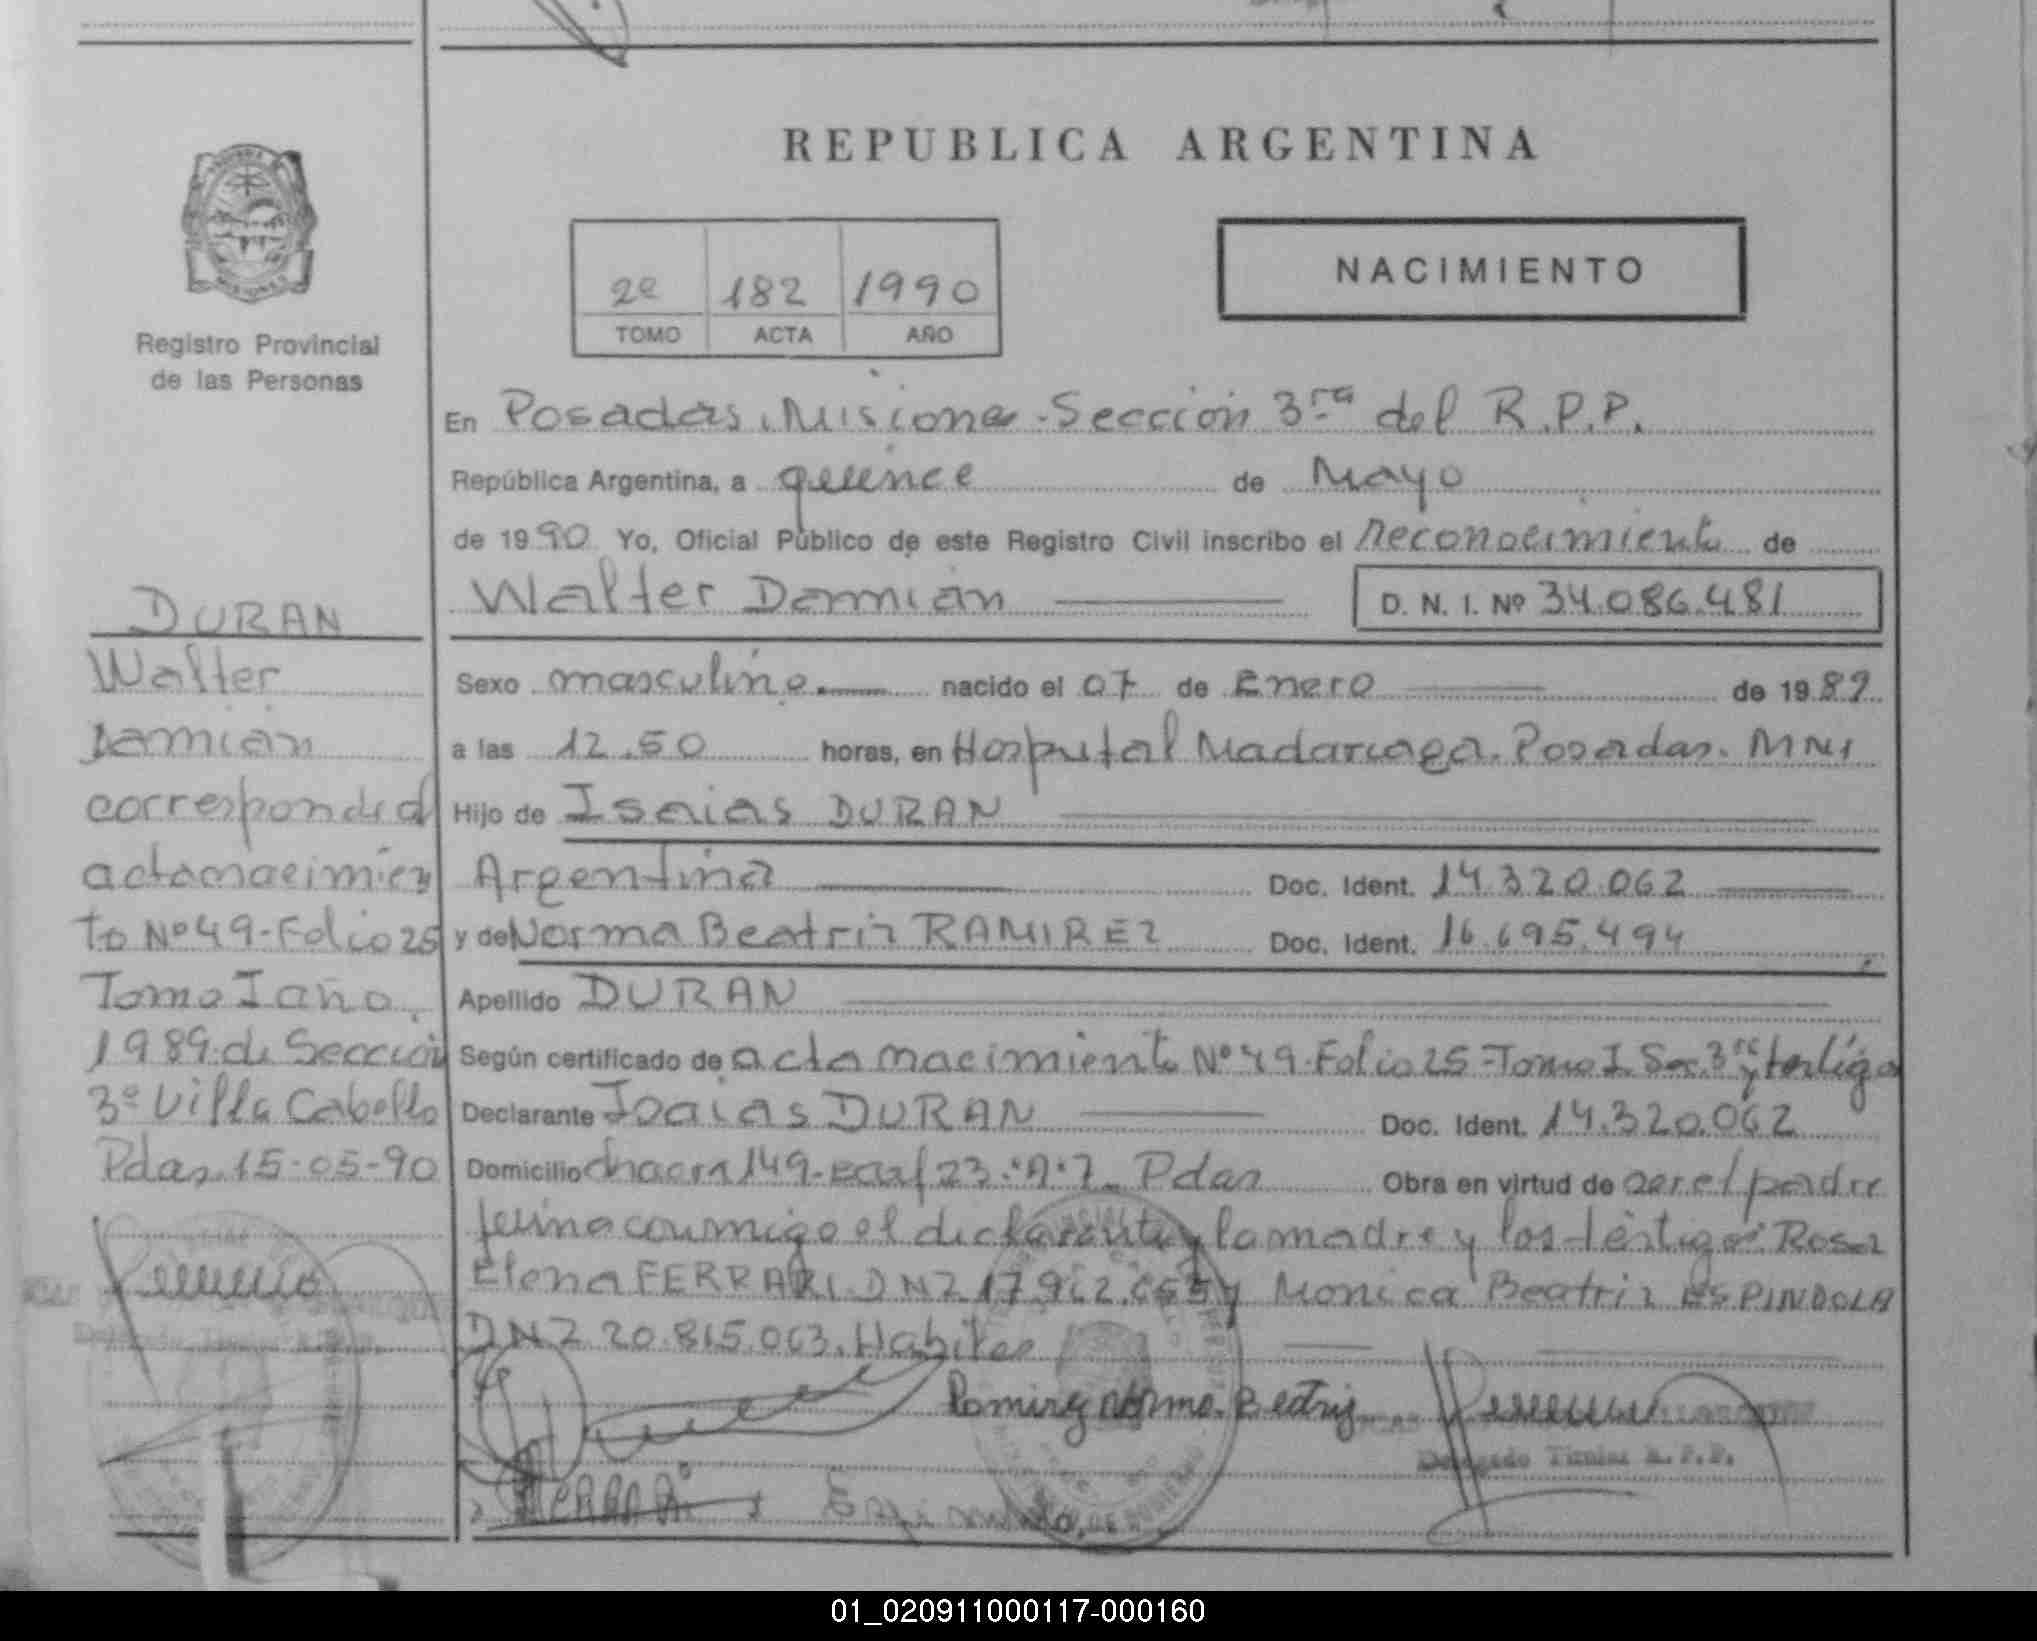 REPUBLICA ARGENTINA
NACIMIENTO
2º 182 1990
TOMO ACTA AÑO
Registro Provincial
de las Personas
En Posadas, Misiones - Sección 3ra del R.P.P.
República Argentina, a quince de Mayo
de 1990 Yo, Oficial Público de este Registro Civil inscribo el reconocimiento de
Walter Damián D. N. I. Nº 34.086.481
DURAN
Walter
Damián
correspond al
acta nacimien
to Nº 49-Folio 25
Tomo I año
1989 de Sección
3º Villa Cabello
Pdas. 15-05-90
Sexo masculino nacido el 07 de Enero de 1989
a las 12.50 horas, en Hospital Madariaga. Posadas. Mnes
Hijo de Isaias DURAN
Argentina Doc. Ident. 14.320.062
y de Norma Beatriz RAMIREZ Doc. Ident. 16.695.494
Apellido DURAN
Según certificado de acta nacimiento Nº 49-Folio 25-Tomo I Sec. 3ra y testigos
Declarante Isaias DURAN Doc. Ident. 14.320.062
Domicilio chacra 149- 23 "A" Pdas Obra en virtud de ser el padre
firma conmigo el declarante y la madre y los testigos Rosa
Elena FERRARI DNI 17.962.655 y Monica Beatriz ESPINDOLA
DNI 20.815.063. Habiles
Ramirez Norma Beatriz
Delegado Titular R.P.P.
01_020911000117-000160